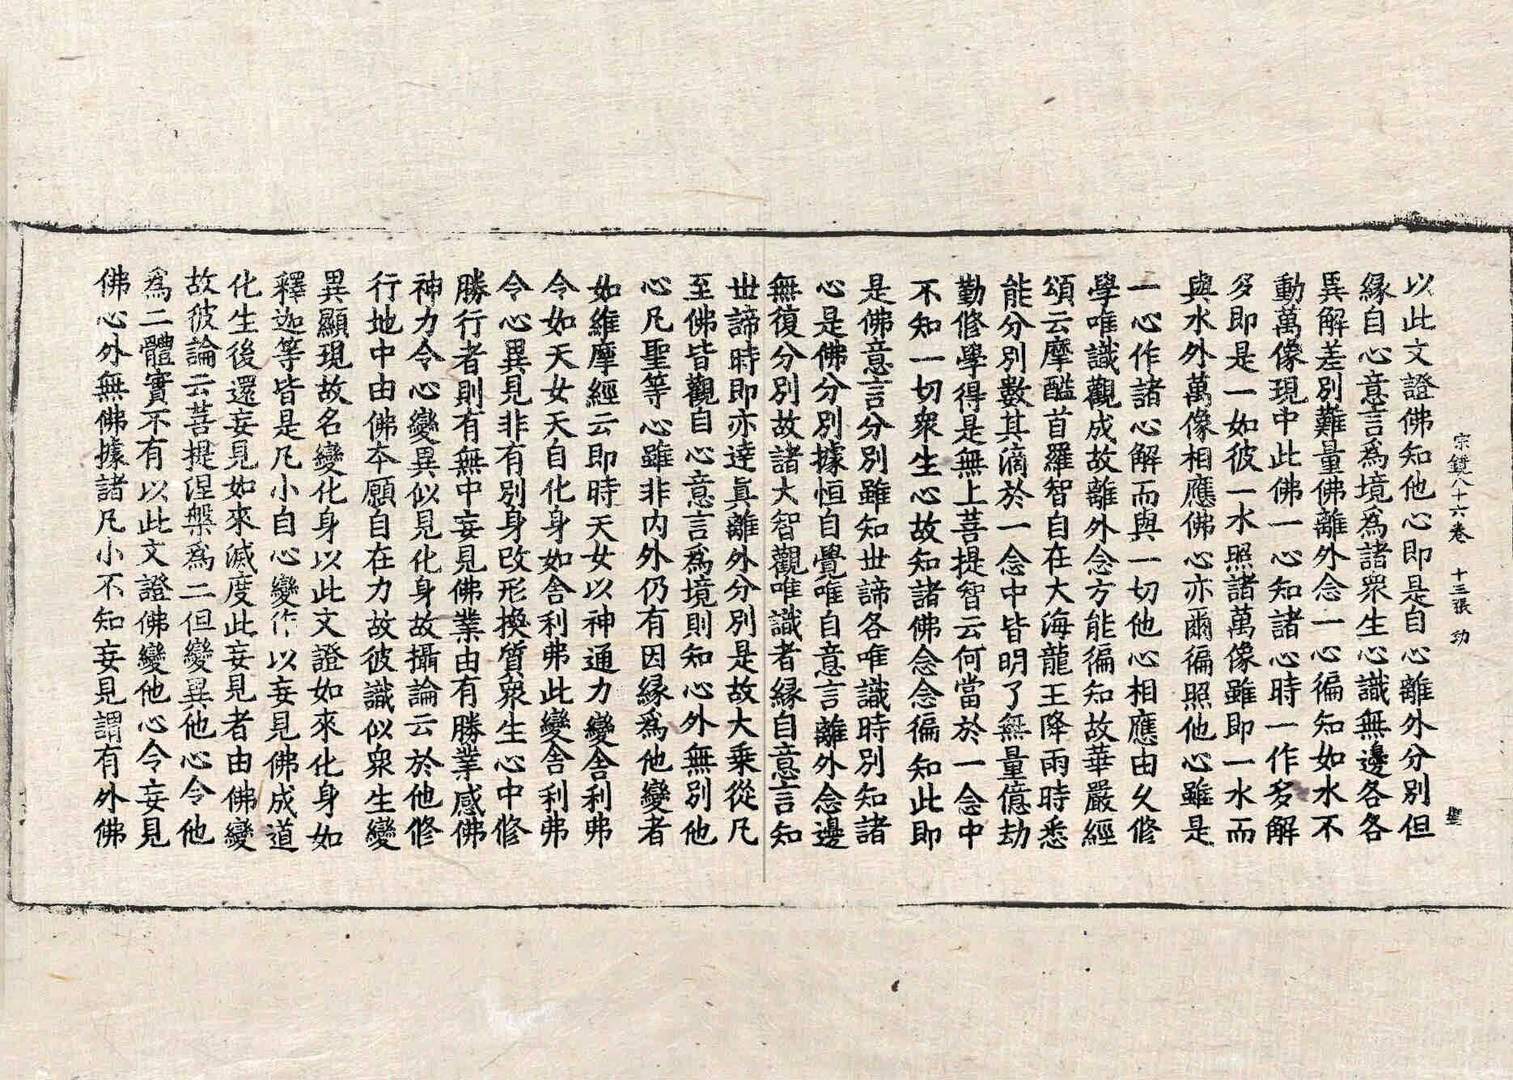 宗鏡八十六卷 十三張 功
聖
以此文證佛知他心即是自心離外分別但
縁自心意言爲境爲諸衆生心識無邊各各
異解差別難量佛離外念一心徧知如水不
動萬像現中此佛一心知諸心時一作多解
多即是一如彼一水照諸萬像雖即一水而
與水外萬像相應佛心亦爾徧照他心雖是
一心作諸心解而與一切他心相應由久修
學唯識觀成故離外念方能徧知故華嚴經
頌云摩醯首羅智自在大海龍王降雨時悉
能分別數其滴於一念中皆明了無量億劫
勤修學得是無上菩提智云何當於一念中
不知一切衆生心故知諸佛念念徧知此即
是佛意言分別雖知世諦各唯識時別知諸
心是佛分別據恒自覺唯自意言離外念邊
無復分別故諸大智觀唯識者縁自意言知
世諦時即亦達眞離外分別是故大乘從凡
至佛皆觀自心意言爲境則知心外無別他
心凡聖等心雖非内外仍有因縁爲他變者
如維摩經云即時天女以神通力變舍利弗
令如天女天自化身如舍利弗此變舍利弗
令心異見非有別身改形換質衆生心中修
勝行者則有無中妄見佛業由有勝業感佛
神力令心變異似見化身故攝論云於他修
行地中由佛本願自在力故彼識似衆生變
異顯現故名變化身以此文證如來化身如
釋迦等皆是凡小自心變作以妄見佛成道
化生後還妄見如來滅度此妄見者由佛變
故彼論云菩提涅槃爲二但變異他心令他
爲二體實不有以此文證佛變他心令妄見
佛心外無佛據諸凡小不知妄見謂有外佛